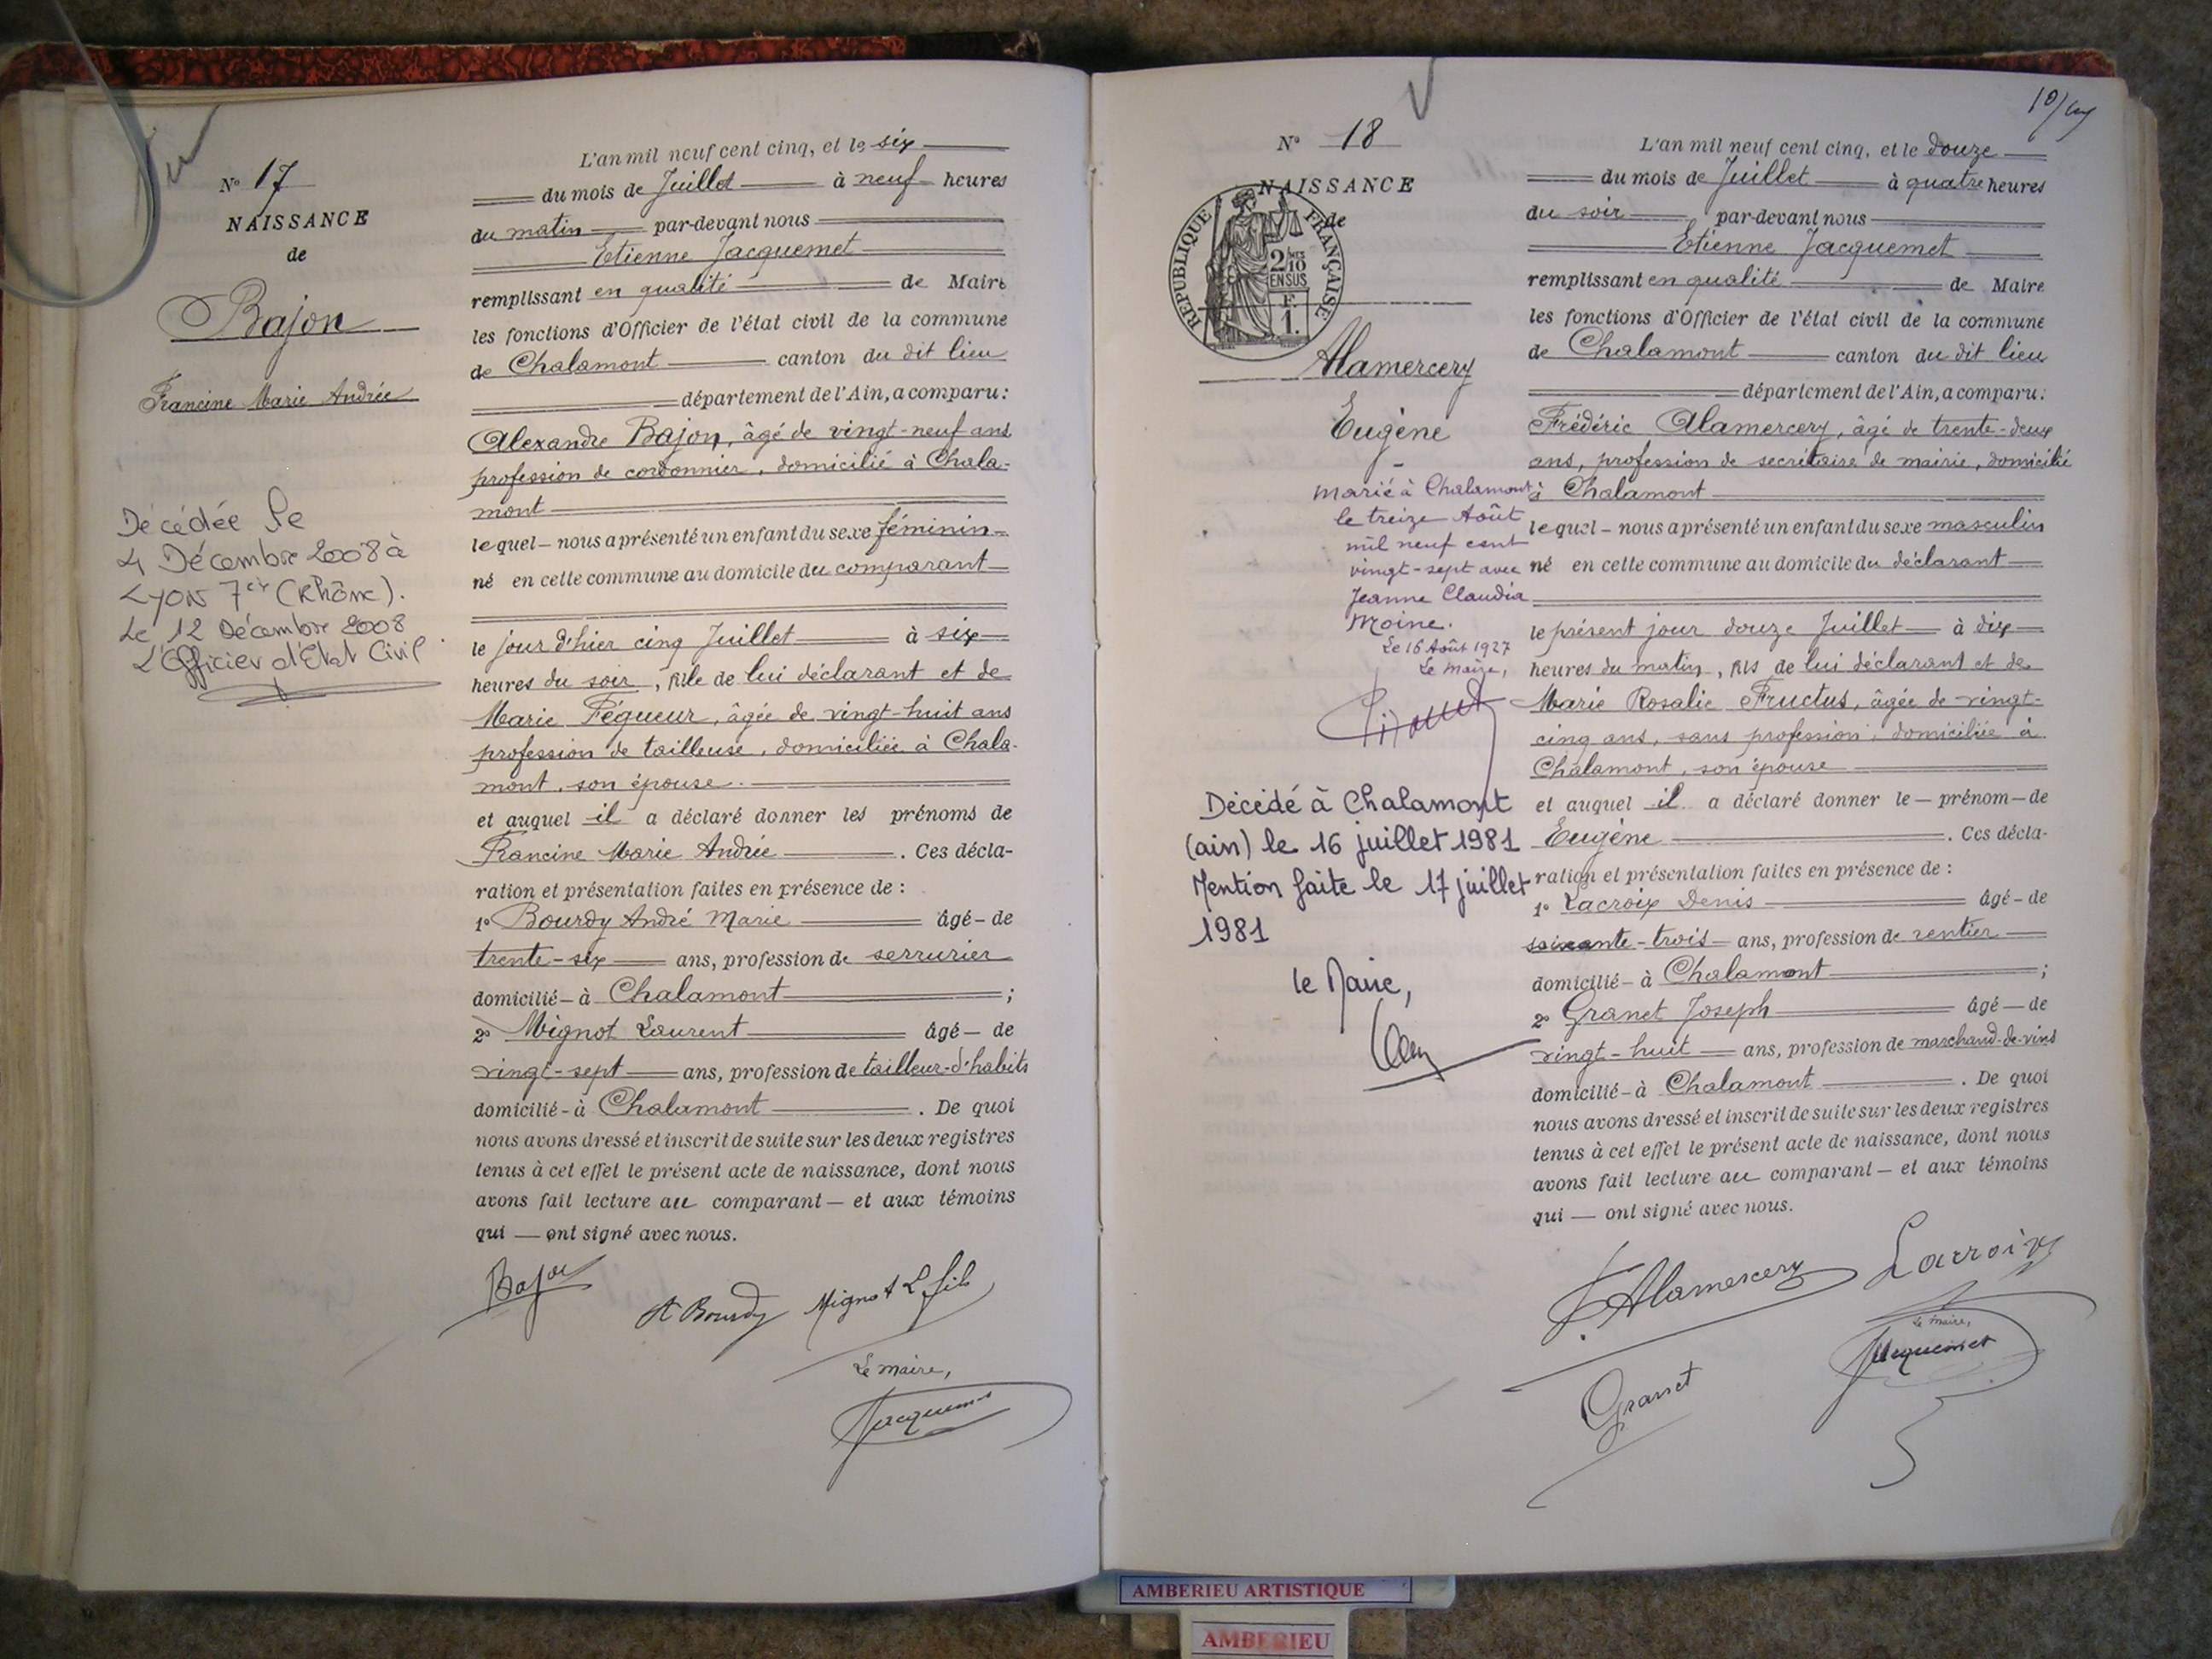 Nº 17
NAISSANCE
de
Bajon
Francine Marie Andrée
Décédée le
4 Décembre 2008 à
Lyon 7e (Rhône).
Le 12 Décembre 2008
L'Officier d'Etat Civil
L'an mil neuf cent cinq, et le six
du mois de Juillet à neuf heures
du matin par-devant nous
Etienne Jacquemet
remplissant en qualité de Maire
les fonctions d'Officier de l'état civil de la commune
de Chalamont canton du dit lieu
département de l'Ain, a comparu:
Alexandre Bajon, âgé de vingt-neuf ans
profession de cordonnier, domicilié à Chala-
mont
lequel – nous a présenté un enfant du sexe féminin
né en cette commune au domicile du comparant
le jour d'hier cinq Juillet à six
heures du soir, fille de lui déclarant et de
Marie Péqueur, âgée de vingt-huit ans
profession de tailleuse, domiciliée à Chala-
mont, son épouse.
et auquel il a déclaré donner les prénoms de
Francine Marie Andrée. Ces décla-
ration et présentation faites en présence de :
1º Bourdy André Marie âgé – de
trente-six ans, profession de serrurier
domicilié – à Chalamont ;
2º Mignot Laurent âgé – de
vingt-sept ans, profession de tailleur-d'habits
domicilié - à Chalamont. De quoi
nous avons dressé et inscrit de suite sur les deux registres
tenus à cet effet le présent acte de naissance, dont nous
avons fait lecture au comparant – et aux témoins
qui — ont signé avec nous.
Bajon
A Bourdy Mignot L fils
Le maire,
Jacquemet
10/
Nº 18
NAISSANCE
de
RÉPUBLIQUE FRANÇAISE
2/10 MES
EN SUS
F.
1.
Alamercery
Eugène
Marié à Chalamont
le treize Août
mil neuf cent
vingt-sept avec
Jeanne Claudia
Moine.
Le 16 Août 1927
Le Maire,
Décédé à Chalamont
(ain) le 16 juillet 1981
Mention faite le 17 juillet
1981
le Maire,
L'an mil neuf cent cinq, et le douze
du mois de Juillet à quatre heures
du soir par-devant nous
Etienne Jacquemet
remplissant en qualité de Maire
les fonctions d'Officier de l'état civil de la commune
de Chalamont canton du dit lieu
département de l'Ain, a comparu:
Frédéric Alamercery, âgé de trente-deux
ans, profession de secrétaire de mairie, domicilié
à Chalamont
lequel – nous a présenté un enfant du sexe masculin
né en cette commune au domicile du déclarant
le présent jour douze Juillet à dix
heures du matin, fils de lui déclarant et de
Marie Rosalie Fructus, âgée de vingt-
cinq ans, sans profession, domiciliée à
Chalamont, son épouse
et auquel il a déclaré donner le – prénom – de
Eugène. Ces décla-
ration et présentation faites en présence de :
1º Lacroix Denis âgé – de
soixante-trois ans, profession de rentier
domicilié – à Chalamont ;
2º Granet Joseph âgé — de
vingt-huit ans, profession de marchand-de-vins
domicilié - à Chalamont. De quoi
nous avons dressé et inscrit de suite sur les deux registres
tenus à cet effet le présent acte de naissance, dont nous
avons fait lecture au comparant – et aux témoins
qui — ont signé avec nous.
F. Alamercery Lacroix
Le maire,
Jacquemet
Granet
AMBERIEU ARTISTIQUE
AMBERIEU